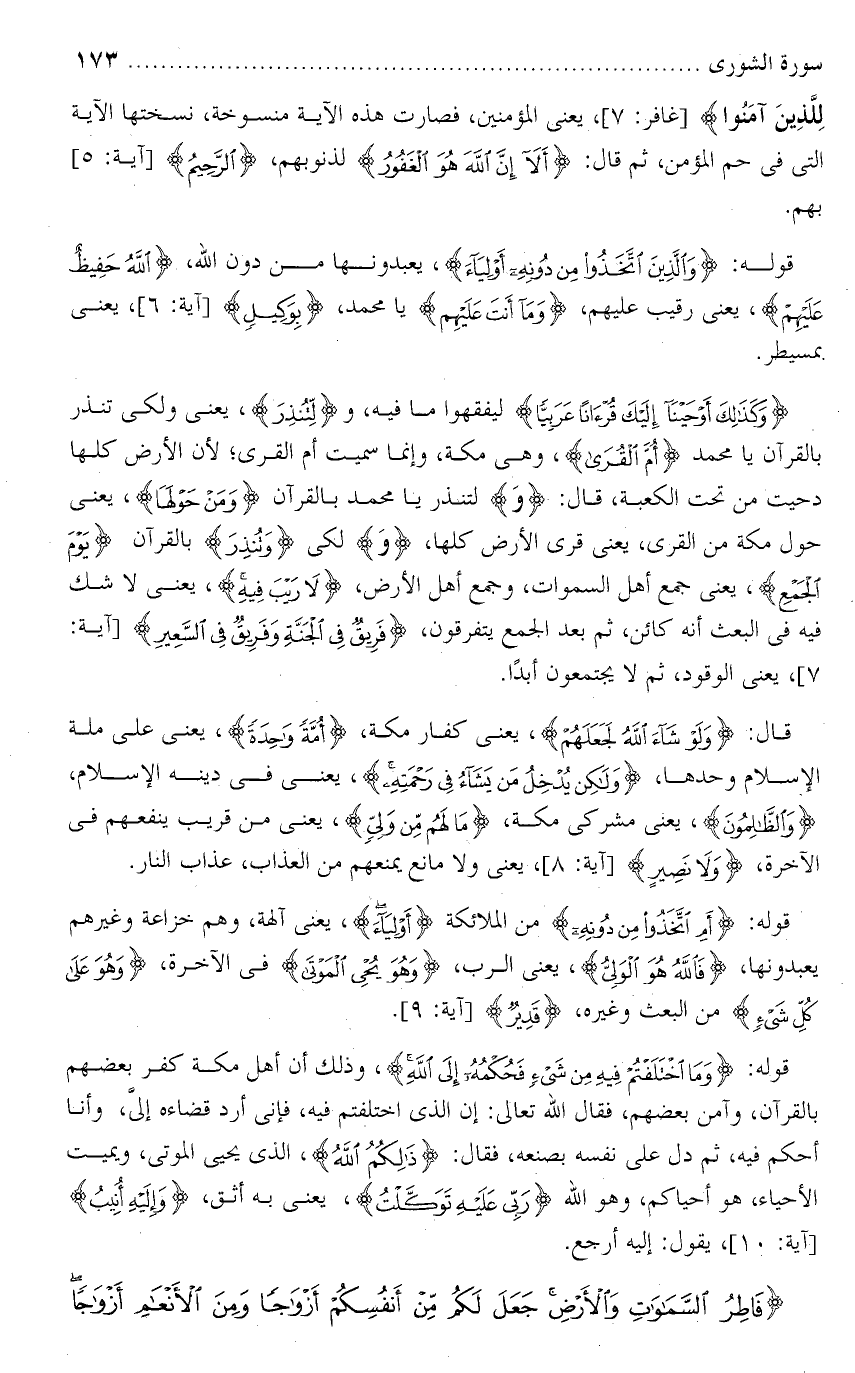 سورة الشورى ........................................................................ ١٧٣
لِلَّذِينَ آمَنُوا﴾ [غافر: ٧]، يعنى المؤمنين، فصارت هذه الآية منسوخة، نسختها الآية
التى فى حم المؤمن، ثم قال: ﴿أَلَآ إِنَّ ٱللَّهَ هُوَ ٱلْغَفُورُ﴾ لذنوبهم، ﴿ٱلرَّحِيمُ﴾ [آية: ٥]
بهم.
قولـه: ﴿وَٱلَّذِينَ ٱتَّخَذُوا۟ مِن دُونِهِۦٓ أَوْلِيَآءَ﴾، يعبدونها من دون الله، ﴿ٱللَّهُ حَفِيظٌ
عَلَيْهِمْ﴾، يعنى رقيب عليهم، ﴿وَمَآ أَنتَ عَلَيْهِم﴾ يا محمد، ﴿بِوَكِيلٍ﴾ [آية: ٦]، يعنى
بمسيطر.
﴿وَكَذَٰلِكَ أَوْحَيْنَآ إِلَيْكَ قُرْءَانًا عَرَبِيًّا﴾ ليفقهوا ما فيه، و ﴿لِّتُنذِرَ﴾، يعنى ولكى تنذر
بالقرآن يا محمد ﴿أُمَّ ٱلْقُرَىٰ﴾، وهى مكة، وإنما سميت أم القرى؛ لأن الأرض كلها
دحيت من تحت الكعبة، قال: ﴿وَ﴾ لتنذر يا محمد بالقرآن ﴿وَمَنْ حَوْلَهَا﴾، يعنى
حول مكة من القرى، يعنى قرى الأرض كلها، ﴿وَ﴾ لكى ﴿وَتُنذِرَ﴾ بالقرآن ﴿يَوْمَ
ٱلْجَمْعِ﴾، يعنى جمع أهل السموات، وجمع أهل الأرض، ﴿لَا رَيْبَ فِيهِ ۚ﴾، يعنى لا شك
فيه فى البعث أنه كائن، ثم بعد الجمع يتفرقون، ﴿فَرِيقٌ فِى ٱلْجَنَّةِ وَفَرِيقٌ فِى ٱلسَّعِيرِ﴾ [آية:
٧]، يعنى الوقود، ثم لا يجتمعون أبدًا.
قال: ﴿وَلَوْ شَآءَ ٱللَّهُ لَجَعَلَهُمْ﴾، يعنى كفار مكة، ﴿أُمَّةً وَٰحِدَةً﴾، يعنى على ملة
الإسلام وحدها، ﴿وَلَٰكِن يُدْخِلُ مَن يَشَآءُ فِى رَحْمَتِهِۦ ۚ﴾، يعنى فى دينه الإسلام،
﴿وَٱلظَّٰلِمُونَ﴾، يعنى مشركى مكة، ﴿مَا لَهُم مِّن وَلِىٍّ﴾، يعنى من قريب ينفعهم فى
الآخرة، ﴿وَلَا نَصِيرٍ﴾ [آية: ٨]، يعنى ولا مانع يمنعهم من العذاب، عذاب النار.
قوله: ﴿أَمِ ٱتَّخَذُوا۟ مِن دُونِهِۦٓ﴾ من الملائكة ﴿أَوْلِيَآءَ ۖ﴾، يعنى آلهة، وهم خزاعة وغيرهم
يعبدونها، ﴿فَٱللَّهُ هُوَ ٱلْوَلِىُّ﴾، يعنى الرب، ﴿وَهُوَ يُحْىِ ٱلْمَوْتَىٰ﴾ فى الآخرة، ﴿وَهُوَ عَلَىٰ
كُلِّ شَىْءٍ﴾ من البعث وغيره، ﴿قَدِيرٌ﴾ [آية: ٩].
قوله: ﴿وَمَا ٱخْتَلَفْتُمْ فِيهِ مِن شَىْءٍ فَحُكْمُهُۥٓ إِلَى ٱللَّهِ ۚ﴾، وذلك أن أهل مكة كفر بعضهم
بالقرآن، وآمن بعضهم، فقال الله تعالى: إن الذى اختلفتم فيه، فإنى أرد قضاءه إلىَّ، وأنا
أحكم فيه، ثم دل على نفسه بصنعه، فقال: ﴿ذَٰلِكُمُ ٱللَّهُ﴾، الذى يحيى الموتى، ويميت
الأحياء، هو أحياكم، وهو الله ﴿رَبِّى عَلَيْهِ تَوَكَّلْتُ﴾، يعنى به أثق، ﴿وَإِلَيْهِ أُنِيبُ﴾
[آية: ١٠]، يقول: إليه أرجع.
﴿فَاطِرُ ٱلسَّمَٰوَٰتِ وَٱلْأَرْضِ ۚ جَعَلَ لَكُم مِّنْ أَنفُسِكُمْ أَزْوَٰجًا وَمِنَ ٱلْأَنْعَٰمِ أَزْوَٰجًا ۖ